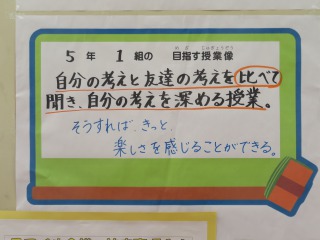 5年 1組の 目指す授業像
自分の考えと友達の考えを比べて
聞き、自分の考えを深める授業。
そうすれば、きっと、
楽しさを感じることができる。